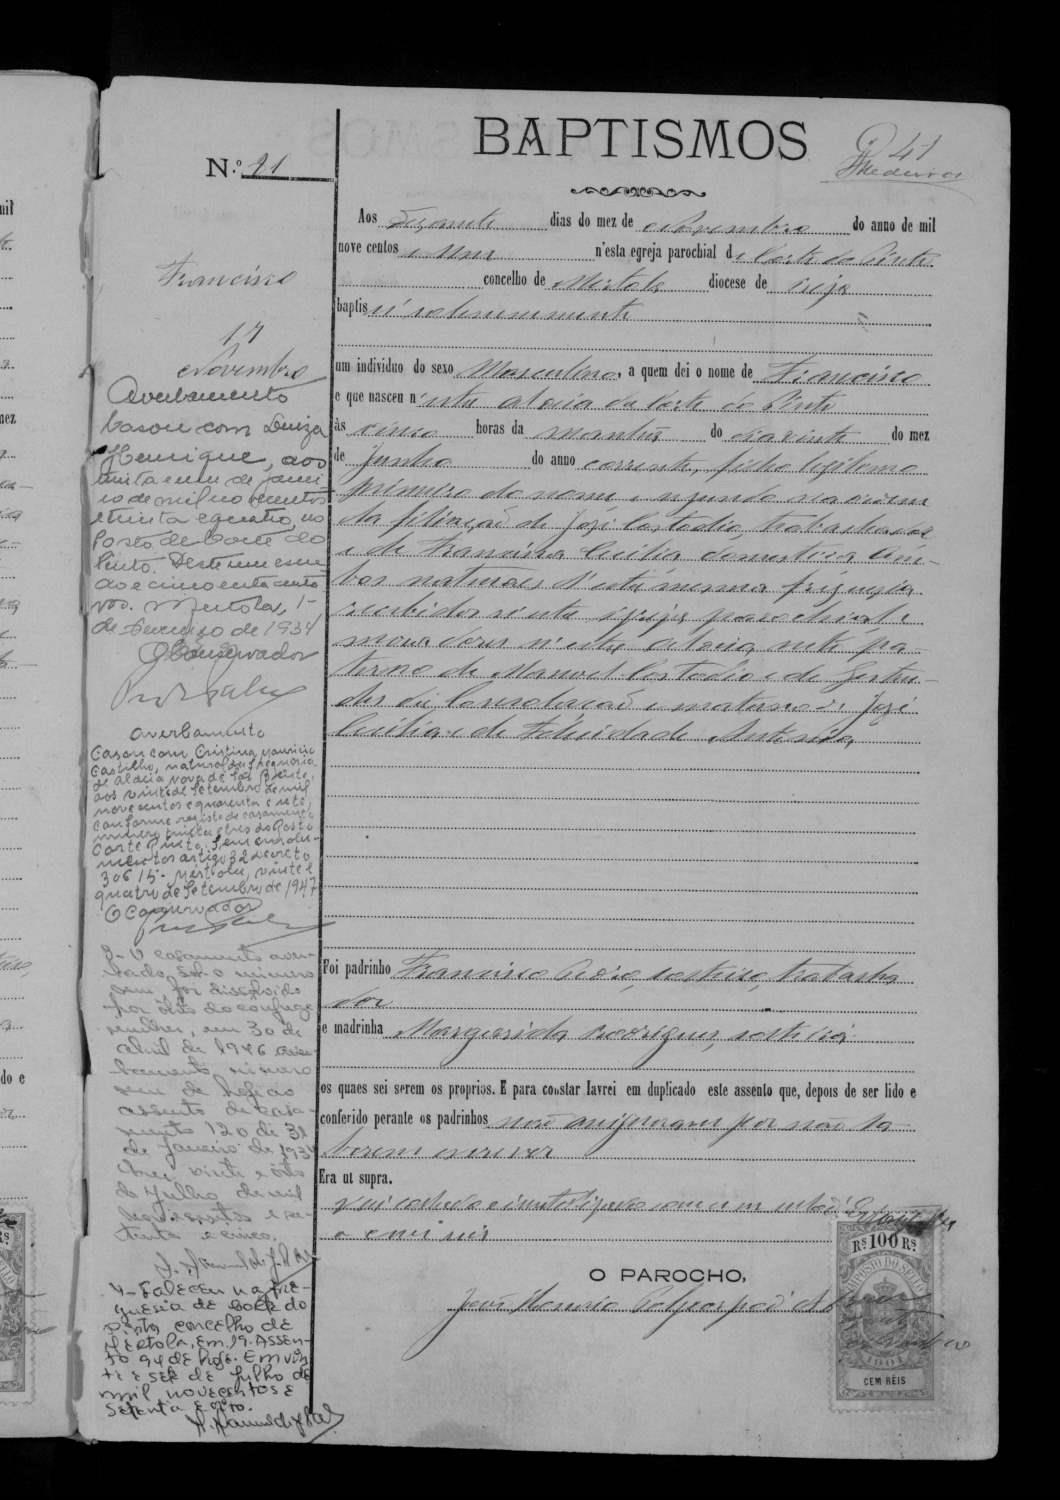 BAPTISMOS
41
N.º 21
Francisco
17
Novembro
Aos dezasete dias do mez de Novembro do anno de mil
nove centos e um n'esta egreja parochial de Corte do Pinto
concelho de Mertola diocese de Beja
baptisei solemnemente
um individuo do sexo Masculino, a quem dei o nome de Francisco
e que nasceu n'esta aldeia da Corte do Pinto
às cinco horas da manhã do dia vinte do mez
de Junho do anno corrente, filho legitimo
primeiro do nome e segundo na ordem
da filiação de José Costodio, trabalhador
e de Francisca Cecilia domestica am-
bos naturaes d'esta mesma freguezia
recebidos n'esta igreja parochial e
moradores n'esta aldeia, neto pa-
terno de Manuel Costodio e de Gertru-
des da Consolação e materno de José
Cecilia e de Felicidade Antonia
Foi padrinho Francisco Pedro, solteiro, trabalha
dor
e madrinha Marguarida Rodrigues, solteira
os quaes sei serem os proprios. E para constar lavrei em duplicado este assento que, depois de ser lido e
conferido perante os padrinhos não assignaram por não sa-
berem escrever
Era ut supra.
O PAROCHO,
Rs 100 Rs
IMPOSTO DO SELLO
1901
CEM RÉIS
Averbamento
Casou com Luiza
Henrique, aos
trinta e um de Janei
ro de mil novecentos
e trinta e quatro, no
Posto de Corte do
Pinto. Deste um escu-
do e cincoenta centa
vos. Mertola, 1-
de Fevereiro de 1934
O Conservador
Averbamento
Casou com Cristina Mauricio
Castilho, natural da freguesia
de Aldeia Nova de São Bento,
aos vinte de Setembro de mil
novecentos e quarenta e sete,
conforme registo de casamento
numero trinta e tres do Posto
Corte Pinto. Sem emolu-
mentos artigo 32 decreto
30615. Mertola, vinte e
quatro de Setembro de 1947
O Conservador
3- O casamento aver-
bado sob o numero
um foi dissolvido
por óbito do conjuge
mulher, em 30 de
abril de 1946
sem de hoje ao
assento de casa-
mento 120 de 31
de Janeiro de 1934
vinte e oito
de Julho de mil
novecentos e se-
tenta e cinco.
4- Faleceu na fre-
guesia de Corte do
Pinto concelho de
Mértola, em 19. Assen-
to 94 de hoje. Em vin
te e sete de Julho de
mil novecentos e
setenta e oito.